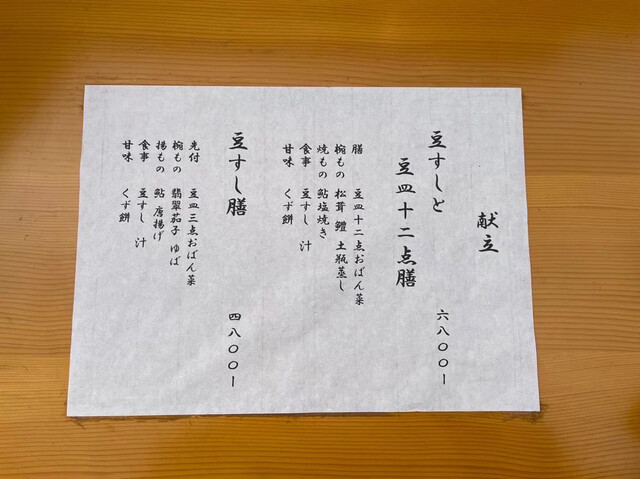 献立
豆すしと
豆皿十二点膳
六八〇〇ー
膳 豆皿十二点おばん菜
椀もの 松茸 鱧 土瓶蒸し
焼もの 鮎塩焼き
食事 豆すし 汁
甘味 くず餅
豆すし膳
四八〇〇ー
先付 豆皿三点おばん菜
椀もの 翡翠茄子 ゆば
揚もの 鮎 唐揚げ
食事 豆すし 汁
甘味 くず餅